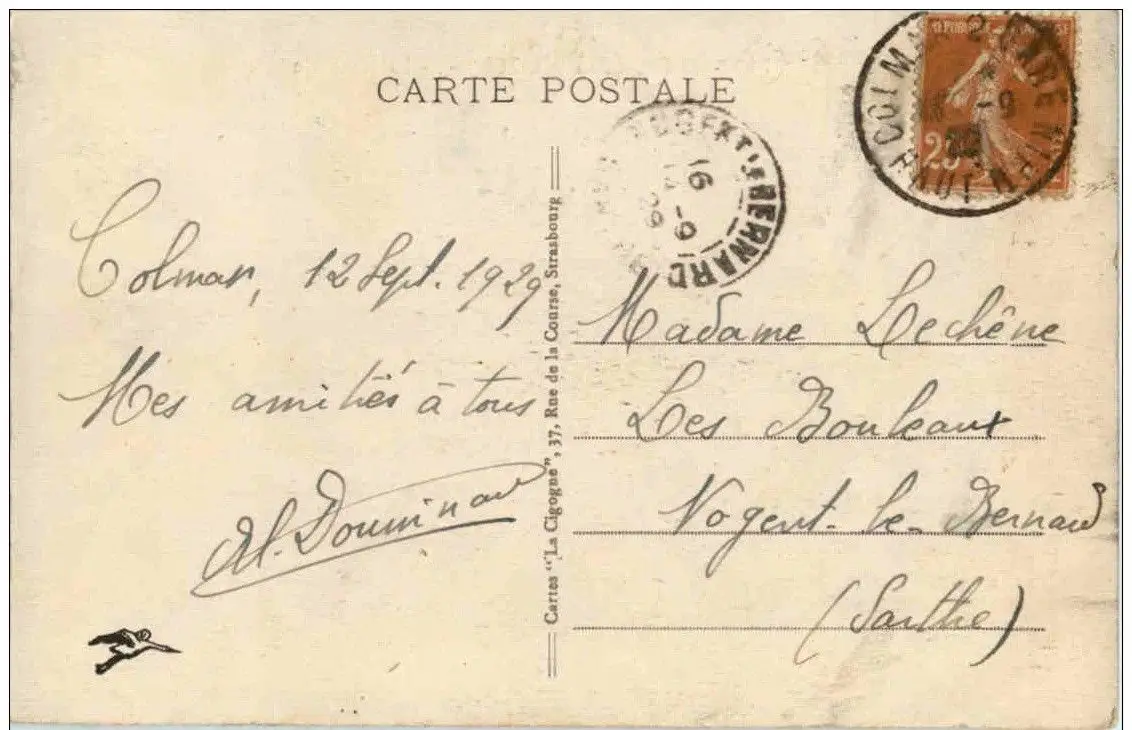 CARTE POSTALE
Colmar, 12 Sept. 1929
Mes amitiés à tous
Al.
Cartes "La Cigogne", 37, Rue de la Course, Strasbourg
Madame Lechêne
Les Bouleaux
Nogent-le-Bernard
(Sarthe)
COLMAR
HAUT-RHIN
-9
25
BERNARD
16
-9
29